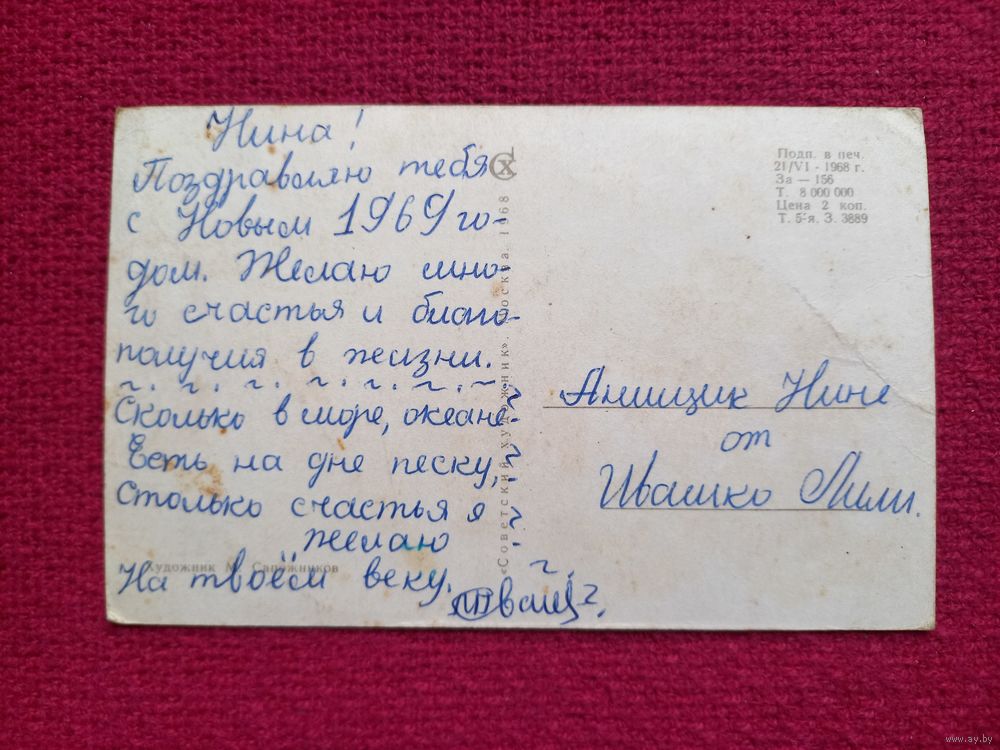 Нина!
Поздравляю тебя
с Новым 1969 го-
дом. Желаю мно-
го счастья и благо-
получия в жизни.
Сколько в море, океане
Есть на дне песку,
Столько счастья я
желаю
На твоём веку.
Художник М. Сапожников
«Советский художник». Москва. 1968
СХ
Подп. в печ.
21/VI - 1968 г.
За — 156
Т. 8 000 000
Цена 2 коп.
Т. 5-я. З. 3889
Нине
от
Ивашко Лили.
www.ay.by